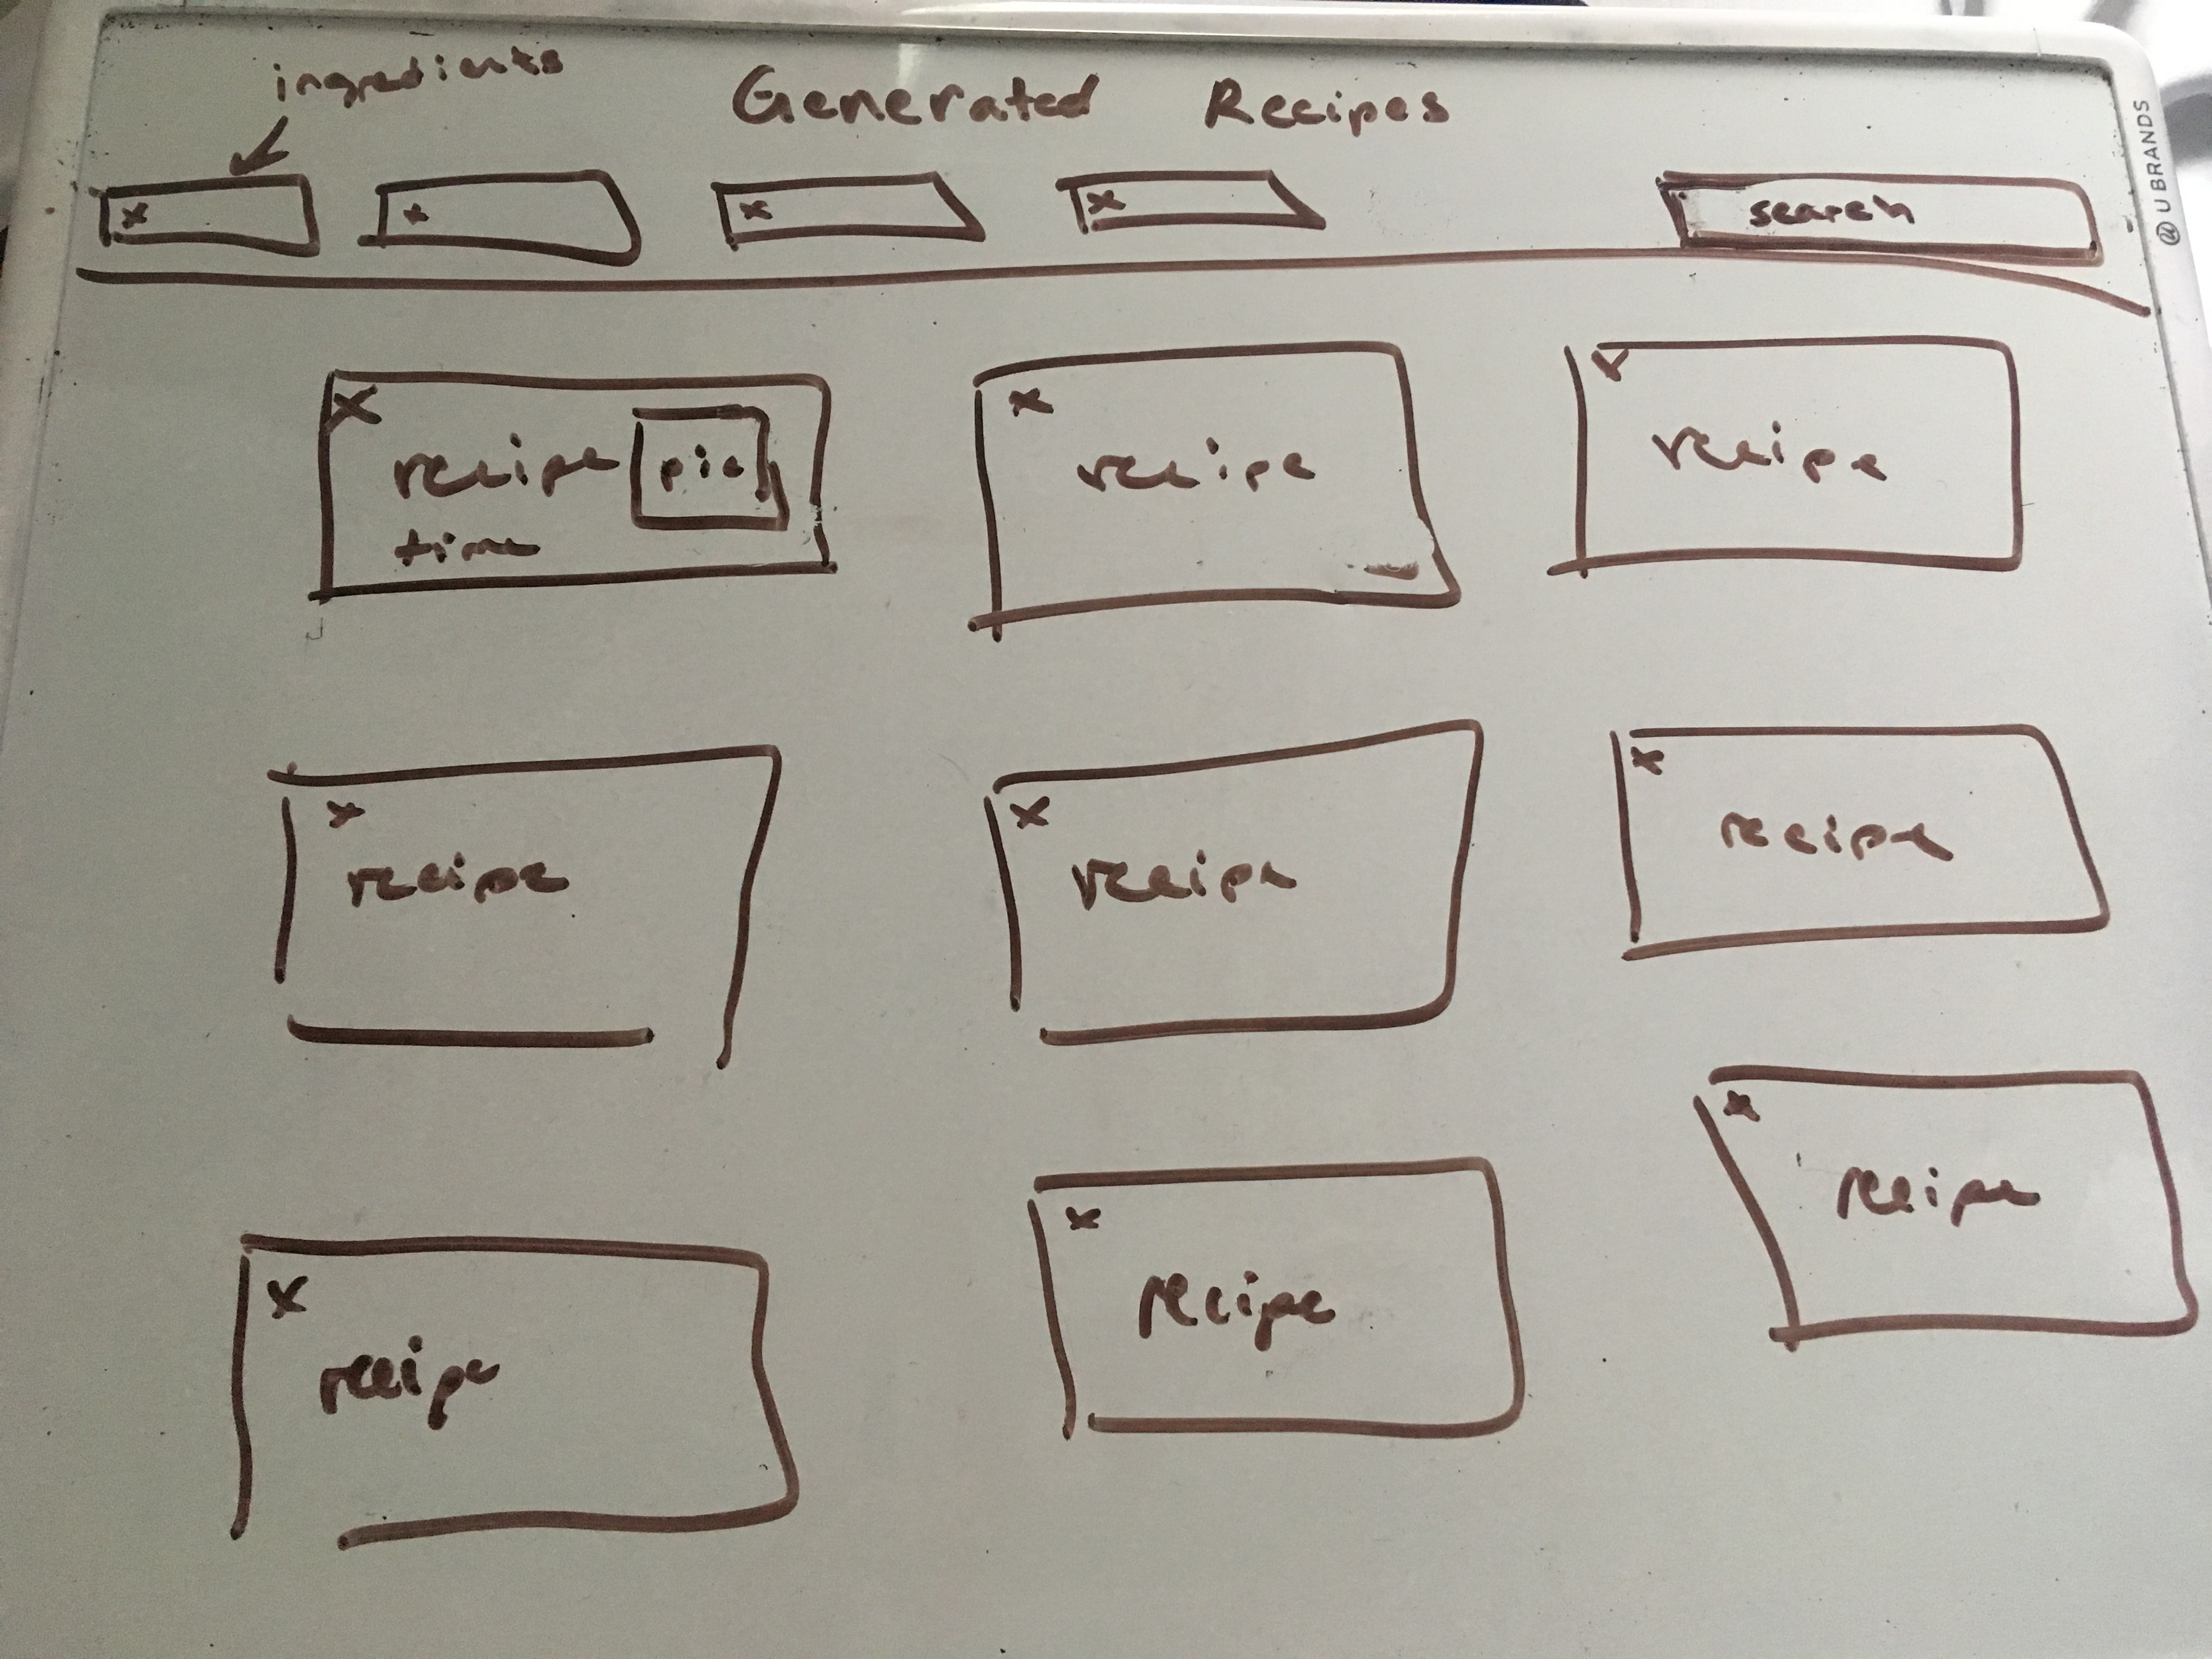 ingredients
Generated Recipes
x
x
x
x
search
U BRANDS
x
recipe
pic
time
x
recipe
x
recipe
x
recipe
x
recipe
x
recipe
x
recipe
x
recipe
x
recipe